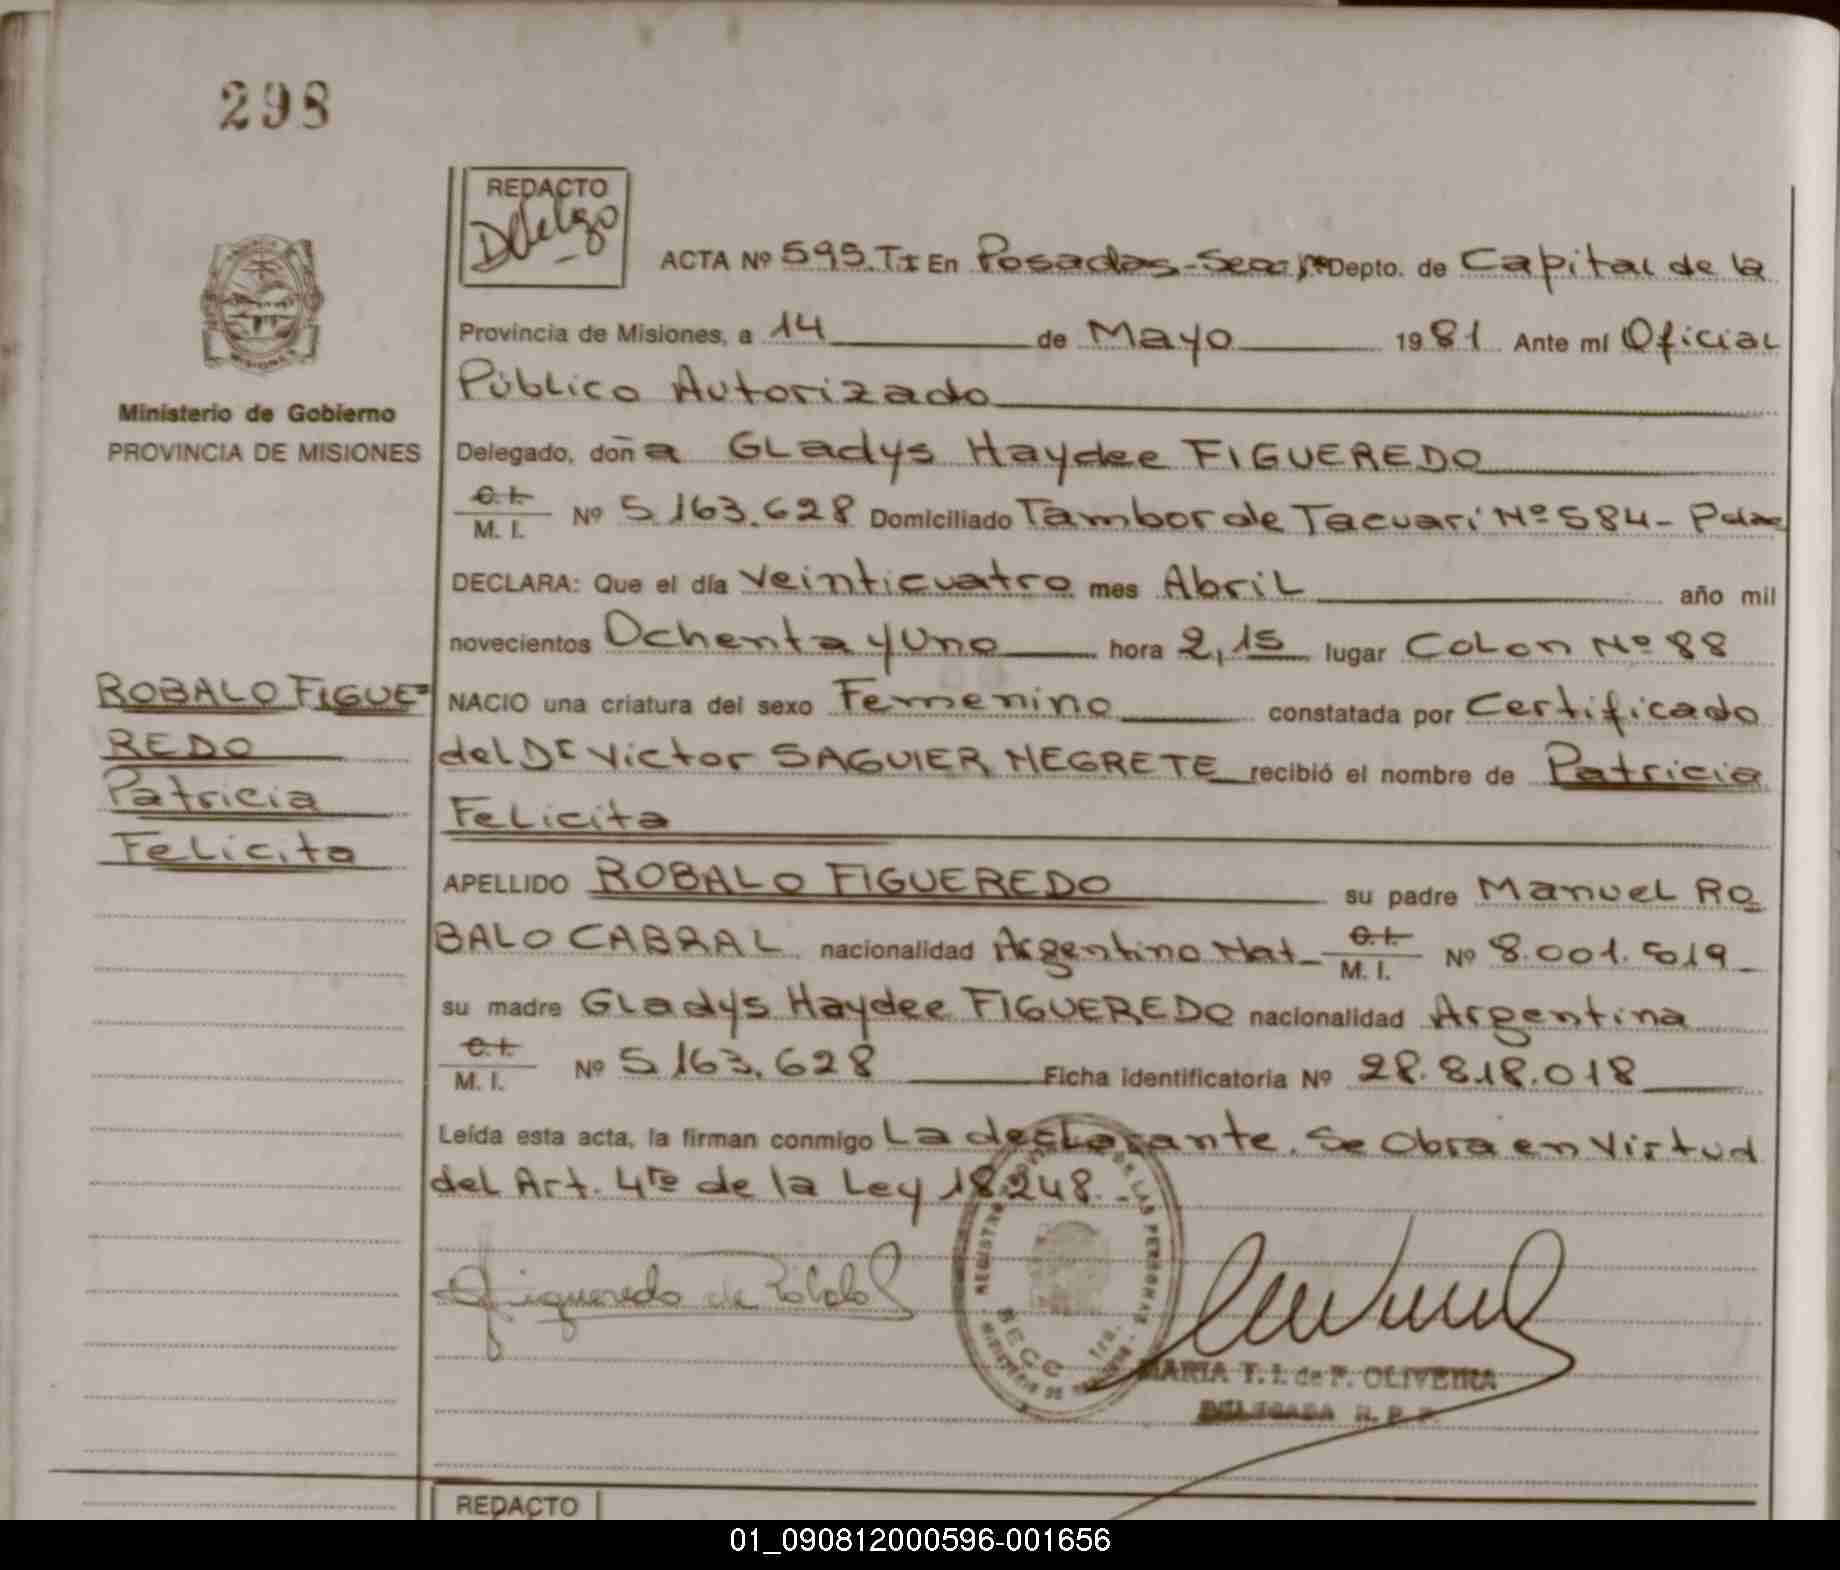 298
REDACTO
Delego
ACTA Nº 595. TI En Posadas-Secc 1ª Depto. de Capital de la
Provincia de Misiones, a 14 de Mayo 1981 Ante mí Oficial
Público Autorizado
Ministerio de Gobierno
PROVINCIA DE MISIONES
Delegado, doña Gladys Haydee FIGUEREDO
C. I.
M. I. Nº 5.163.628 Domiciliado Tambor de Tacuarí Nº 584 - Pdas
DECLARA: Que el día Veinticuatro mes Abril año mil
novecientos Ochenta y Uno hora 2,15 lugar Colon Nº 88
ROBALO FIGUE=
REDO
Patricia
Felicita
NACIO una criatura del sexo Femenino constatada por Certificado
del Dr Victor SAGUIER NEGRETE recibió el nombre de Patricia
Felicita
APELLIDO ROBALO FIGUEREDO su padre Manuel RO
BALO CABRAL nacionalidad Argentino Nat- C. I. M. I. Nº 8.001.5019
su madre Gladys Haydee FIGUEREDO nacionalidad Argentina
C. I.
M. I. Nº 5.163.628 Ficha identificatoria Nº 28.818.018
Leída esta acta, la firman conmigo La declarante. Se Obra en Virtud
del Art. 4to de la Ley 18248.-
Figueredo de Robalo
MARIA T. I. de F. OLIVEIRA
DELEGADA R. P. P.
REDACTO
01_090812000596-001656